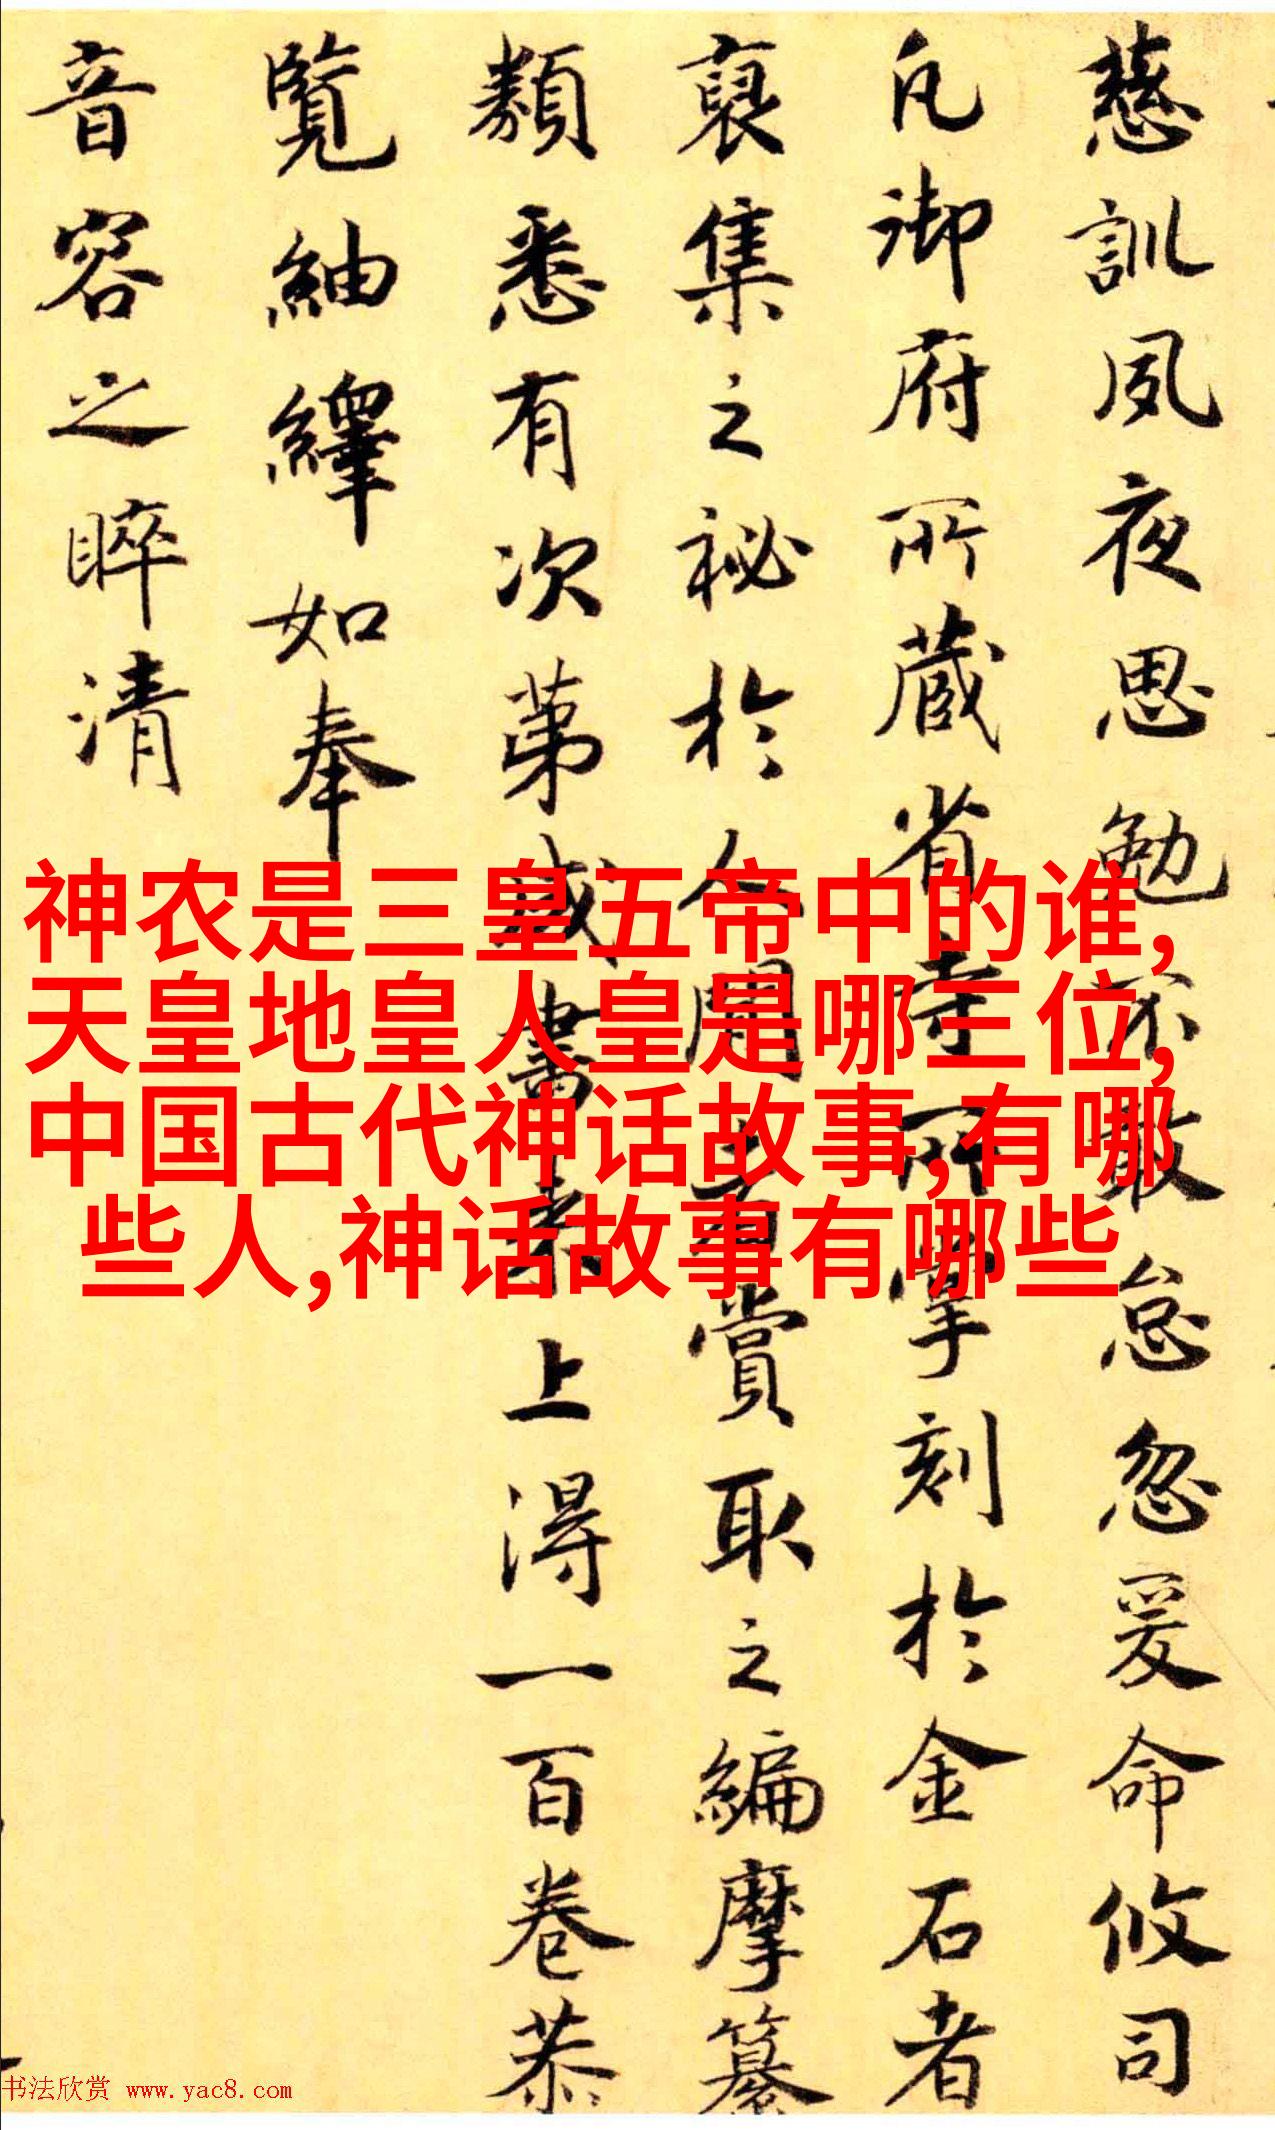 慈訓夙夜思勉不敢怠忽爰命攸司
凡御府所藏省寺所掌刻於金石者
裒集之祕於人間者賞取之編摩纂
類悉有次第咸書來上得一百卷恭
覽紬繹如奉
音容之睟清
神农是三皇五帝中的谁,
天皇地皇人皇是哪三位,
中国古代神话故事,有哪
些人,神话故事有哪些
书法欣赏 www.yac8.com